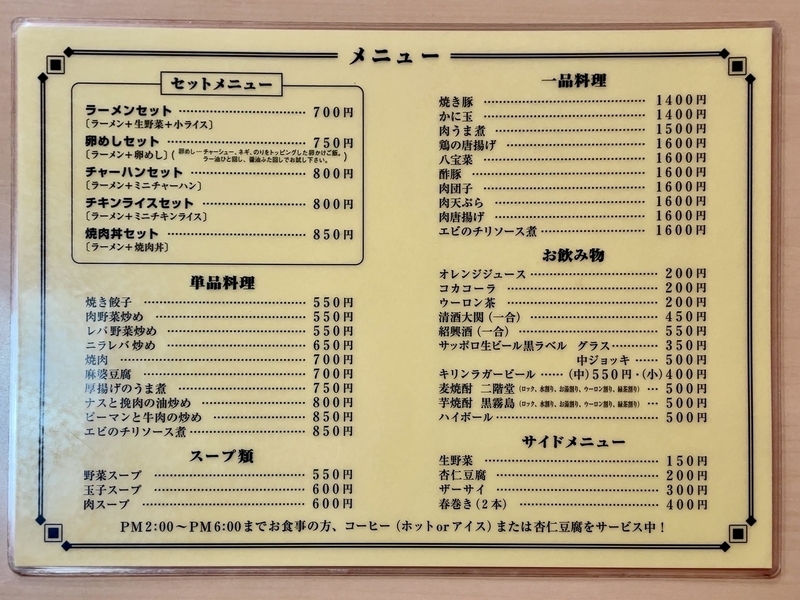 メニュー
セットメニュー
ラーメンセット 700円
〔ラーメン＋生野菜＋小ライス〕
卵めしセット 750円
〔ラーメン＋卵めし〕（卵めし―チャーシュー、ネギ、のりをトッピングした卵かけご飯。
ラー油ひと回し、醤油ふた回しでお試し下さい。）
チャーハンセット 800円
〔ラーメン＋ミニチャーハン〕
チキンライスセット 800円
〔ラーメン＋ミニチキンライス〕
焼肉丼セット 850円
〔ラーメン＋焼肉丼〕
単品料理
焼き餃子 550円
肉野菜炒め 550円
レバ野菜炒め 550円
ニラレバ炒め 650円
焼肉 700円
麻婆豆腐 700円
厚揚げのうま煮 750円
ナスと挽肉の油炒め 800円
ピーマンと牛肉の炒め 850円
エビのチリソース煮 850円
スープ類
野菜スープ 550円
玉子スープ 600円
肉スープ 600円
一品料理
焼き豚 1400円
かに玉 1400円
肉うま煮 1500円
鶏の唐揚げ 1600円
八宝菜 1600円
酢豚 1600円
肉団子 1600円
肉天ぷら 1600円
肉唐揚げ 1600円
エビのチリソース煮 1600円
お飲み物
オレンジジュース 200円
コカコーラ 200円
ウーロン茶 200円
清酒大関（一合） 450円
紹興酒（一合） 550円
サッポロ生ビール黒ラベル グラス 350円
中ジョッキ 500円
キリンラガービール （中）550円・（小）400円
麦焼酎 二階堂（ロック、水割り、お湯割り、ウーロン割り、緑茶割り） 500円
芋焼酎 黒霧島（ロック、水割り、お湯割り、ウーロン割り、緑茶割り） 500円
ハイボール 500円
サイドメニュー
生野菜 150円
杏仁豆腐 200円
ザーサイ 300円
春巻き（2本） 400円
PM2:00〜PM6:00までお食事の方、コーヒー（ホットorアイス）または杏仁豆腐をサービス中！